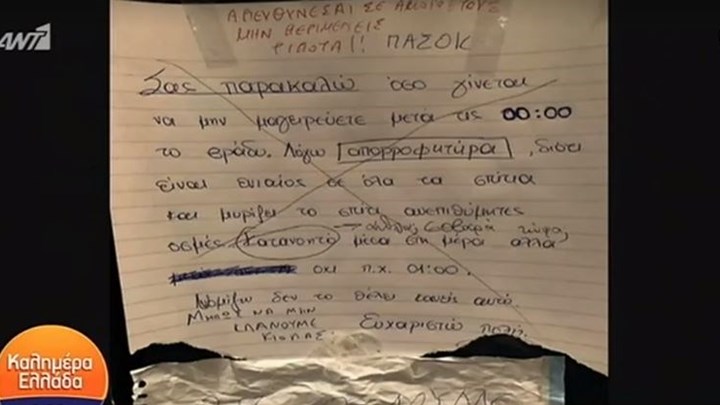 ANT1
ΑΠΕΥΘΥΝΕΣΑΙ ΣΕ ΑΝΑΙΣΘΗΤΟΥΣ
ΜΗΝ ΠΕΡΙΜΕΝΕΙΣ
ΤΙΠΟΤΑ!! ΠΑΣΟΚ
Σας παρακαλώ όσο γίνεται
να μην μαγειρεύετε μετά τις 00:00
το βράδυ. Λόγω απορροφητήρα, διότι
είναι ενιαίος σε όλα τα σπίτια
και μυρίζει το σπίτι ανεπιθύμητες
σοβαρά τώρα;
οσμές. Κατανοητό μέσα στη μέρα αλλά
όχι π.χ. 01:00.
Νομίζω δεν το θέλει κανείς αυτό.
ΜΗΠΩΣ ΝΑ ΜΗΝ
ΚΛΑΝΟΥΜΕ
ΚΙΟΛΑΣ
Ευχαριστώ πολύ.
Καλημέρα
Ελλάδα